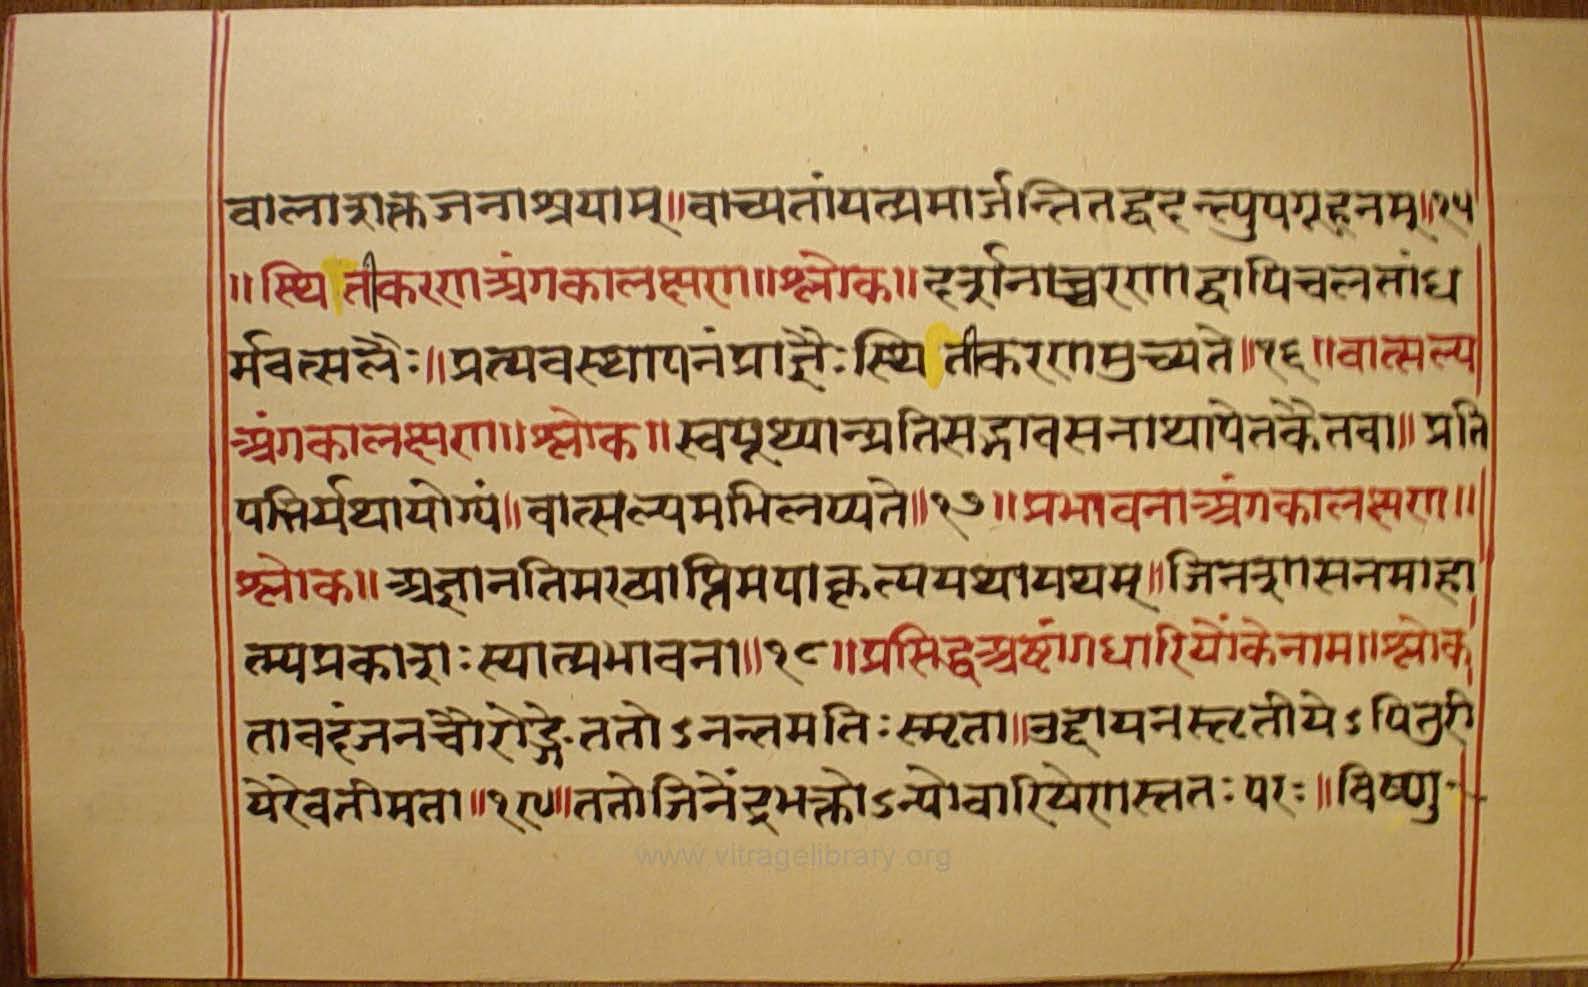 वालाशक्तजनाश्रयाम्॥वाच्यतांयत्प्रमार्जन्तितद्वदन्त्युपगूहनम्॥१५
॥स्थितीकरणअंगकालक्षण॥श्लोक॥दर्शनाच्चरणाद्वापिचलतांध
र्मवत्सलैः॥प्रत्यवस्थापनंप्राज्ञैःस्थितीकरणमुच्यते॥१६॥वात्सल्य
अंगकालक्षण॥श्लोक॥स्वयूथ्यान्प्रतिसद्भावसनाथापेतकैतवा॥प्रति
पत्तिर्यथायोग्यं॥वात्सल्यमभिलप्यते॥१७॥प्रभावनाअंगकालक्षण॥
श्लोक॥अज्ञानतिमरव्याप्तिमपाकृत्ययथायथम्॥जिनशासनमाहा
त्म्यप्रकाशःस्यात्प्रभावना॥१८॥प्रसिद्धअष्टांगधारियोंकेनाम॥श्लोक
तावदंजनचौरोङ्गेततोऽनन्तमतिःस्मृता॥उद्दायनस्तृतीयेऽपितुरी
येरेवतीमता॥१९॥ततोजिनेंद्रभक्तोऽन्योवारिषेणस्ततःपरः॥विष्णु
www.vitragelibrary.org